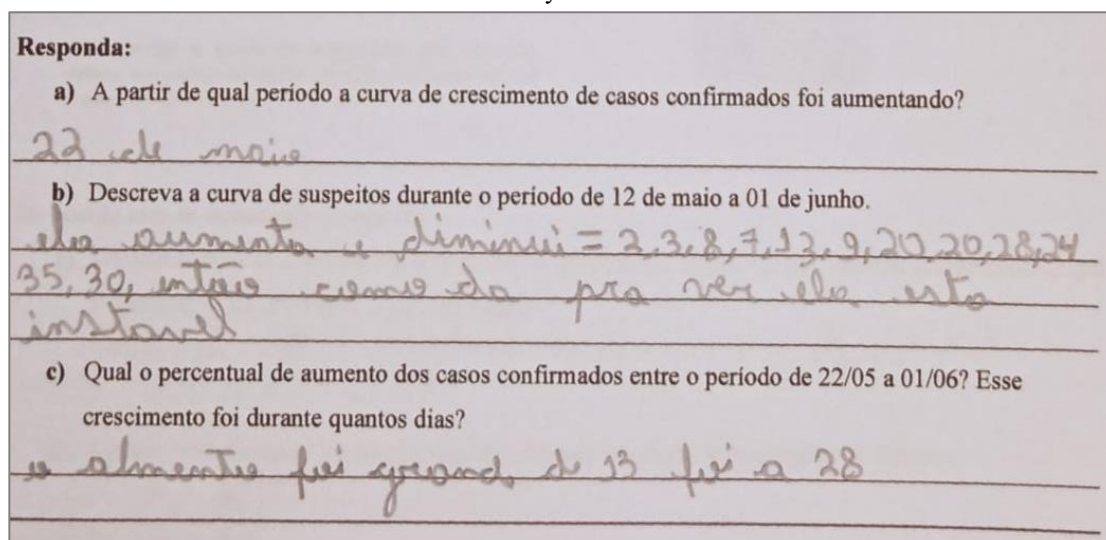 Responda:
a) A partir de qual período a curva de crescimento de casos confirmados foi aumentando?
22 de maio
b) Descreva a curva de suspeitos durante o período de 12 de maio a 01 de junho.
ela aumenta e diminui = 2,3,8,7,13,9,20,20,28,24
35,30, então como da pra ver ela esta
instavel
c) Qual o percentual de aumento dos casos confirmados entre o período de 22/05 a 01/06? Esse
crescimento foi durante quantos dias?
o almento foi grand, de 13 foi a 28